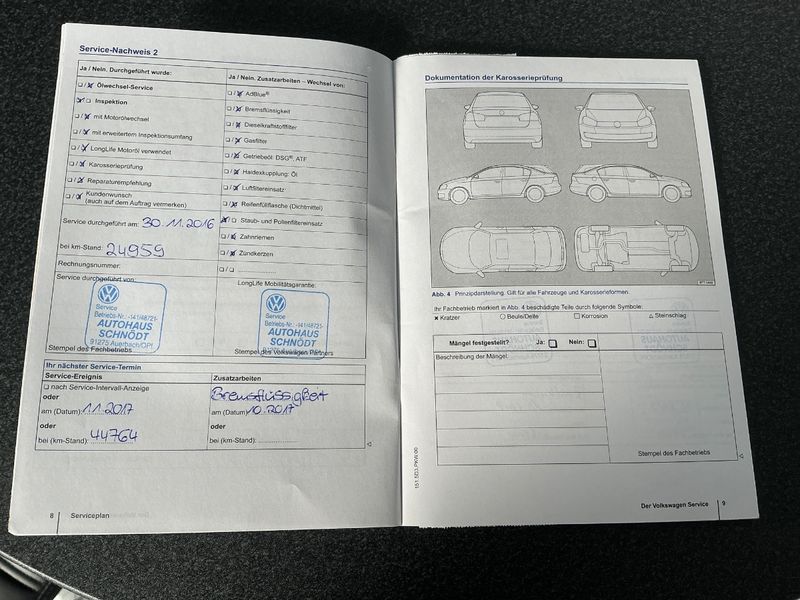 Service-Nachweis 2
Ja / Nein. Durchgeführt wurde:
Ölwechsel-Service
Inspektion
mit Motorölwechsel
mit erweitertem Inspektionsumfang
LongLife Motoröl verwendet
Karosserieprüfung
Reparaturempfehlung
Kundenwunsch
(auch auf dem Auftrag vermerken)
Service durchgeführt am: 30.11.2016
bei km-Stand: 24959
Rechnungsnummer:
Service durchgeführt von:
Service
Betriebs-Nr.: -141/48721-
AUTOHAUS
SCHNÖDT
91275 Auerbach/OPf.
Stempel des Fachbetriebs
Ja / Nein. Zusatzarbeiten – Wechsel von:
AdBlue®
Bremsflüssigkeit
Dieselkraftstofffilter
Gasfilter
Getriebeöl: DSG®, ATF
Haldexkupplung: Öl
Luftfiltereinsatz
Reifenfüllflasche (Dichtmittel)
Staub- und Pollenfiltereinsatz
Zahnriemen
Zündkerzen
LongLife Mobilitätsgarantie:
Service
Betriebs-Nr.: -141/48721-
AUTOHAUS
SCHNÖDT
91275 Auerbach/OPf.
Stempel des Volkswagen Partners
Ihr nächster Service-Termin
Service-Ereignis
nach Service-Intervall-Anzeige
oder
am (Datum): 11.2017
oder
bei (km-Stand): 44764
Zusatzarbeiten
Bremsflüssigkeit
am (Datum) 10.2017
oder
bei (km-Stand):
8 Serviceplan
Dokumentation der Karosserieprüfung
Abb. 4 Prinzipdarstellung. Gilt für alle Fahrzeuge und Karosserieformen.
Ihr Fachbetrieb markiert in Abb. 4 beschädigte Teile durch folgende Symbole:
Kratzer Beule/Delle Korrosion Steinschlag
Mängel festgestellt? Ja: Nein:
Beschreibung der Mängel:
Stempel des Fachbetriebs
151.5D3.PKW.00
Der Volkswagen Service 9